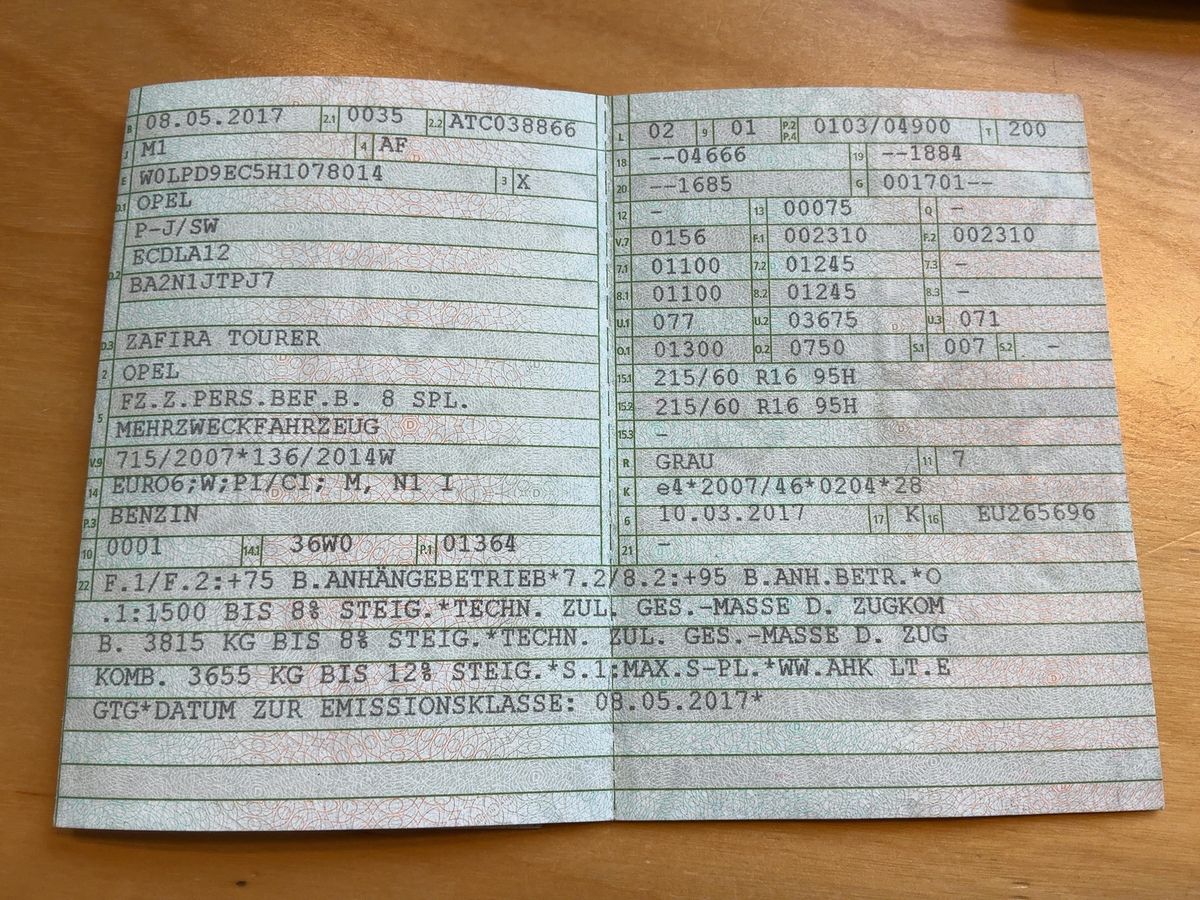 B 08.05.2017 2.1 0035 2.2 ATC038866
J M1 4 AF
E W0LPD9EC5H1078014 3 X
D.1 OPEL
P-J/SW
D.2 ECDLA12
BA2N1JTPJ7
D.3 ZAFIRA TOURER
2 OPEL
5 FZ.Z.PERS.BEF.B. 8 SPL.
MEHRZWECKFAHRZEUG
V.9 715/2007*136/2014W
14 EURO6;W;PI/CI; M, N1 I
P.3 BENZIN
10 0001 14.1 36W0 P.1 01364
L 02 9 01 P.2 P.4 0103/04900 T 200
18 --04666 19 --1884
20 --1685 G 001701--
12 - 13 00075 Q -
V.7 0156 F.1 002310 F.2 002310
7.1 01100 7.2 01245 7.3 -
8.1 01100 8.2 01245 8.3 -
U.1 077 U.2 03675 U.3 071
O.1 01300 O.2 0750 S.1 007 S.2 -
15.1 215/60 R16 95H
15.2 215/60 R16 95H
15.3 -
R GRAU 11 7
K e4*2007/46*0204*28
6 10.03.2017 17 K 16 EU265696
21 -
22 F.1/F.2:+75 B.ANHÄNGEBETRIEB*7.2/8.2:+95 B.ANH.BETR.*O
.1:1500 BIS 8% STEIG.*TECHN. ZUL. GES.-MASSE D. ZUGKOM
B. 3815 KG BIS 8% STEIG.*TECHN. ZUL. GES.-MASSE D. ZUG
KOMB. 3655 KG BIS 12% STEIG.*S.1:MAX.S-PL.*WW.AHK LT.E
GTG*DATUM ZUR EMISSIONSKLASSE: 08.05.2017*